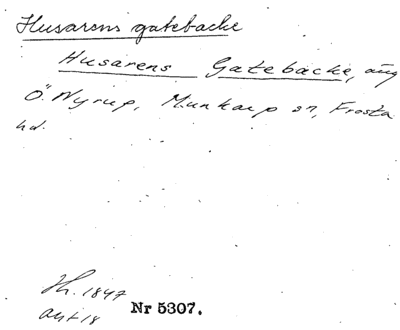 Husarens gatebacke
Husarens Gatebacke, äng
Ö. Nyrup, Munkarp sn, Frosta
hd.
Hh. 1847
akt 18 Nr 5307.